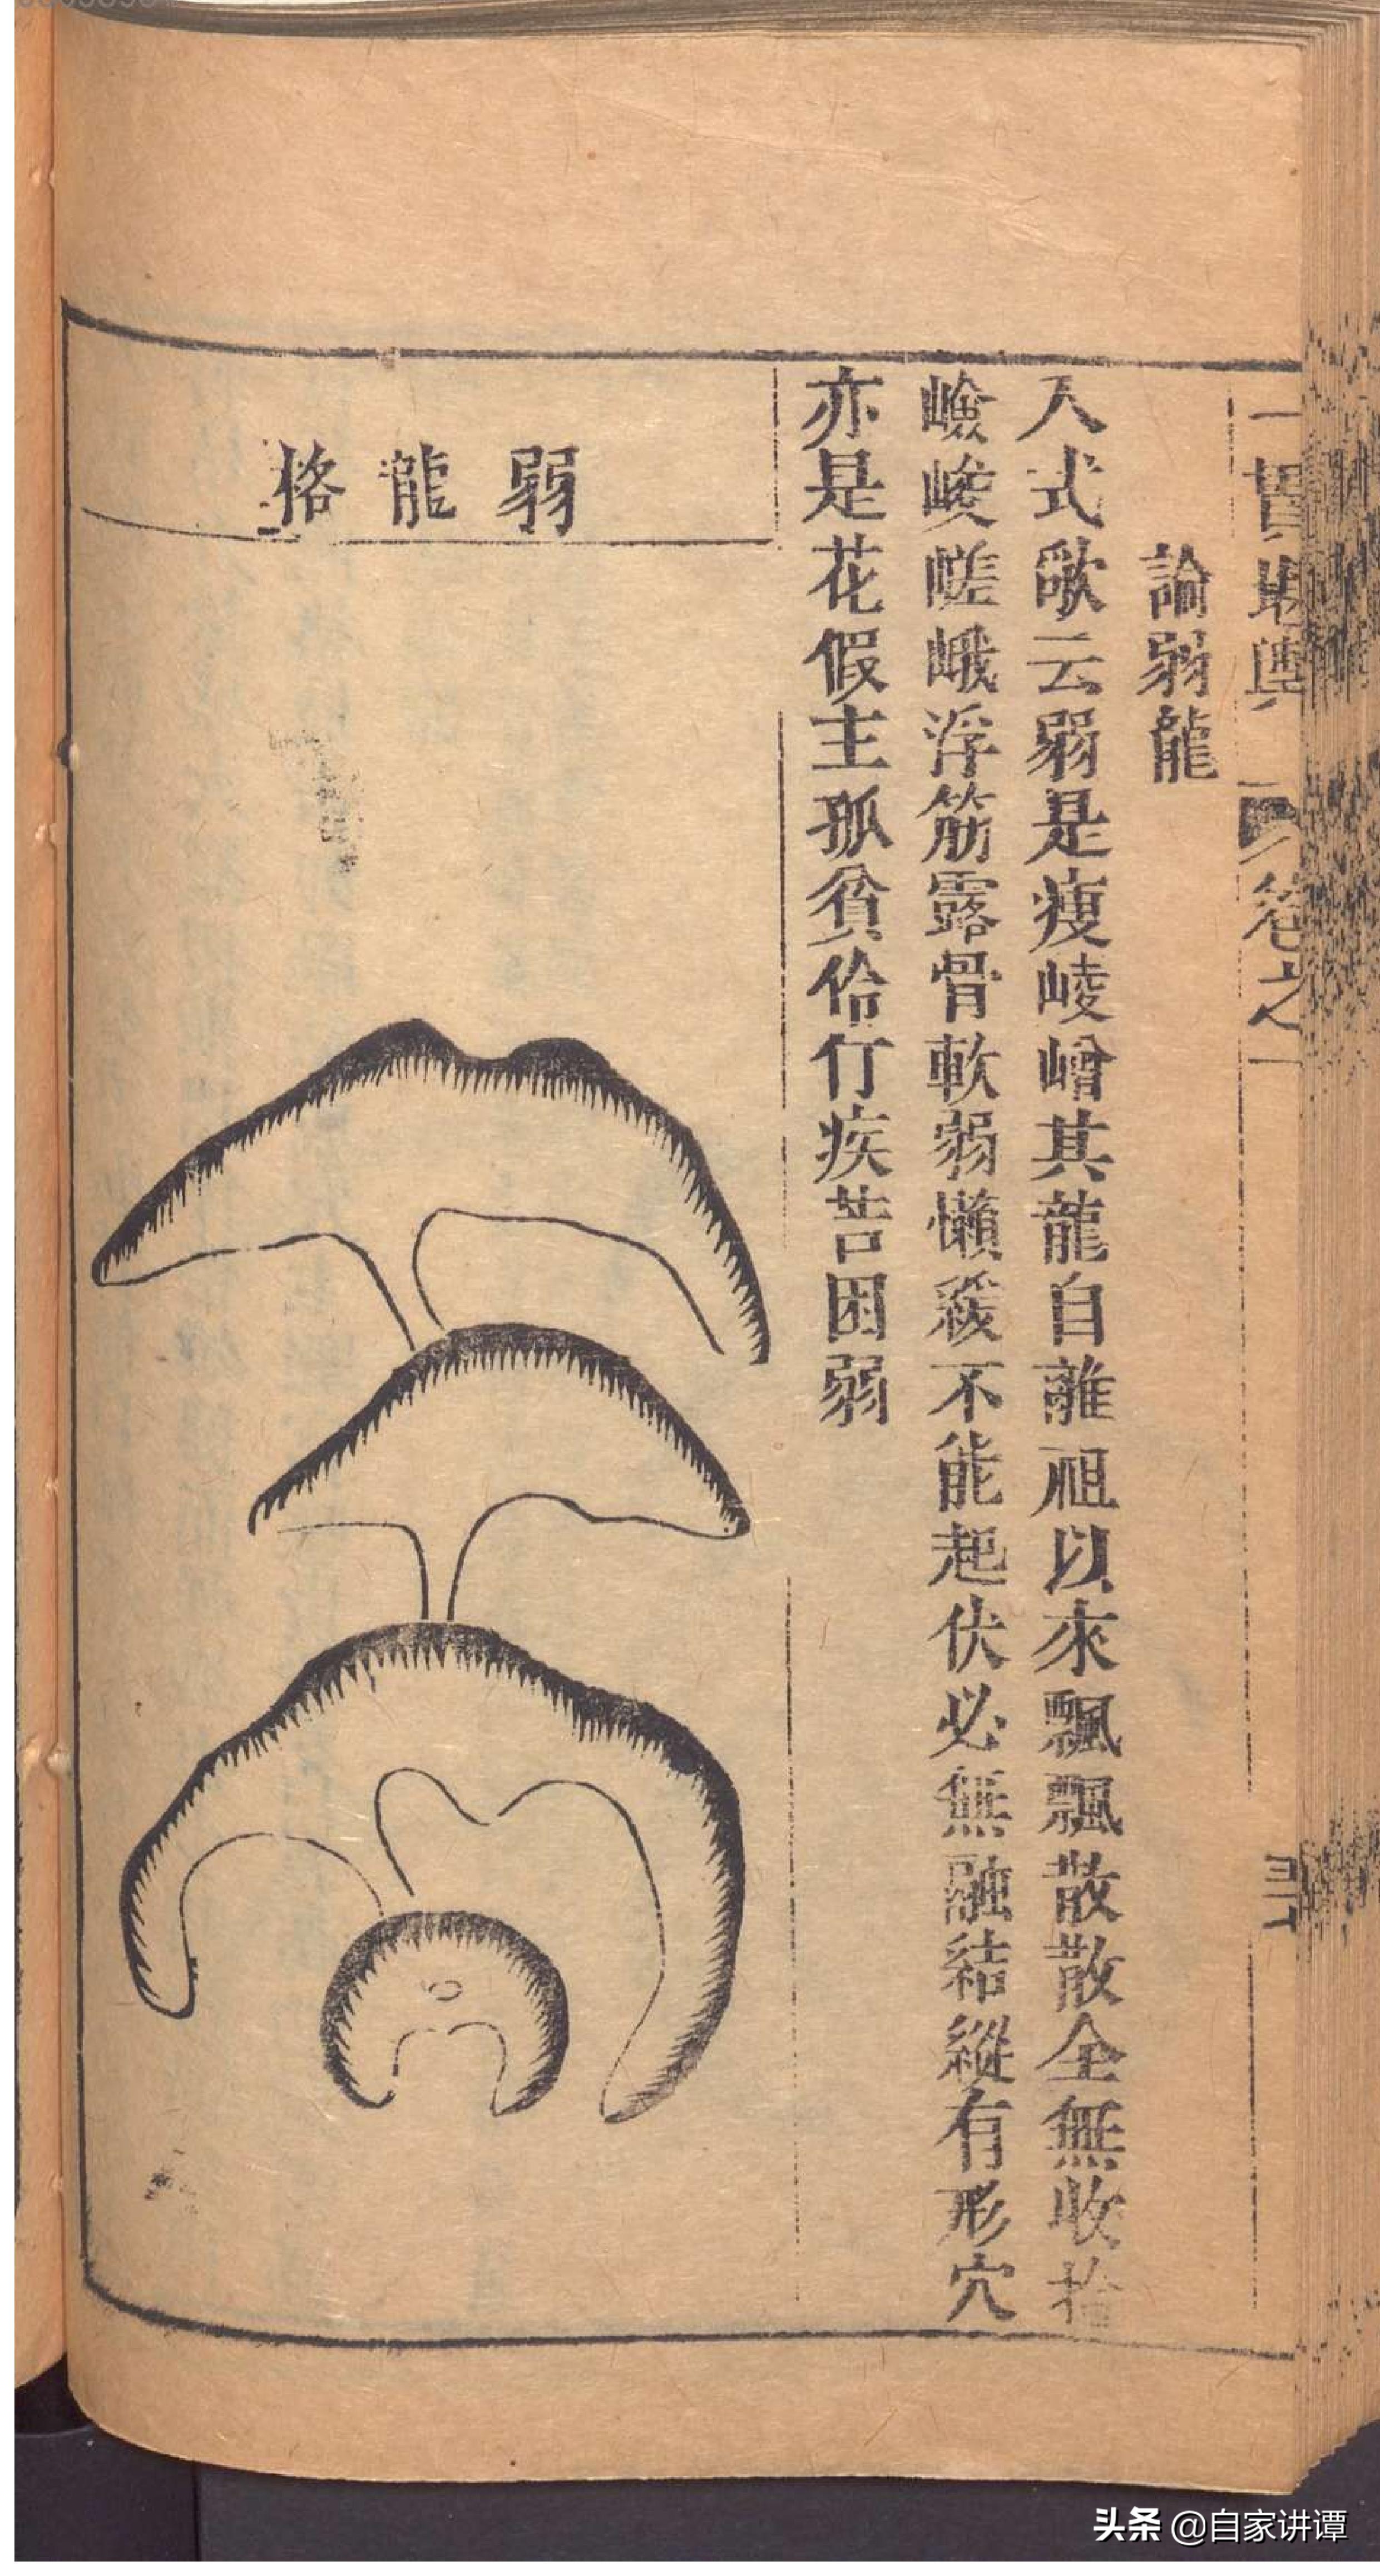 一貫堪輿 卷之一
論弱龍
入式歌云弱是瘦崚嶒其龍自離祖以來飄飄散散全無收拾
嶮峻嵯峨浮筋露骨軟弱懶緩不能起伏必無融結縱有形穴
亦是花假主孤貧伶仃疾苦困弱
弱龍格
头条 @自家讲谭